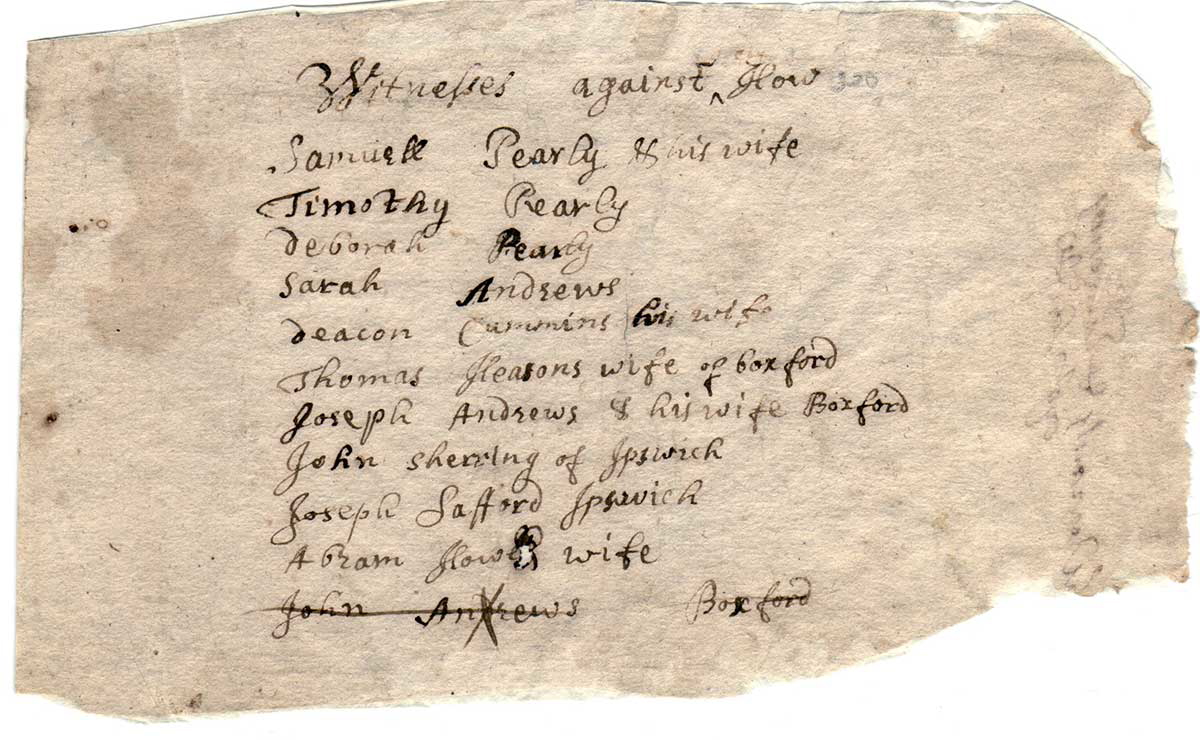 Witnesses against ‸ How
Samuell Pearly & his wife
Timothy Pearly
deborah Pearly
Sarah Andrews
deacon Cummins his wife
Thomas Heasons wife of boxford
Joseph Andrews & his wife Boxford
John Sherring of Ipswich
Joseph Safford Ipswich
Abram Hows wife
John Andrews Boxford